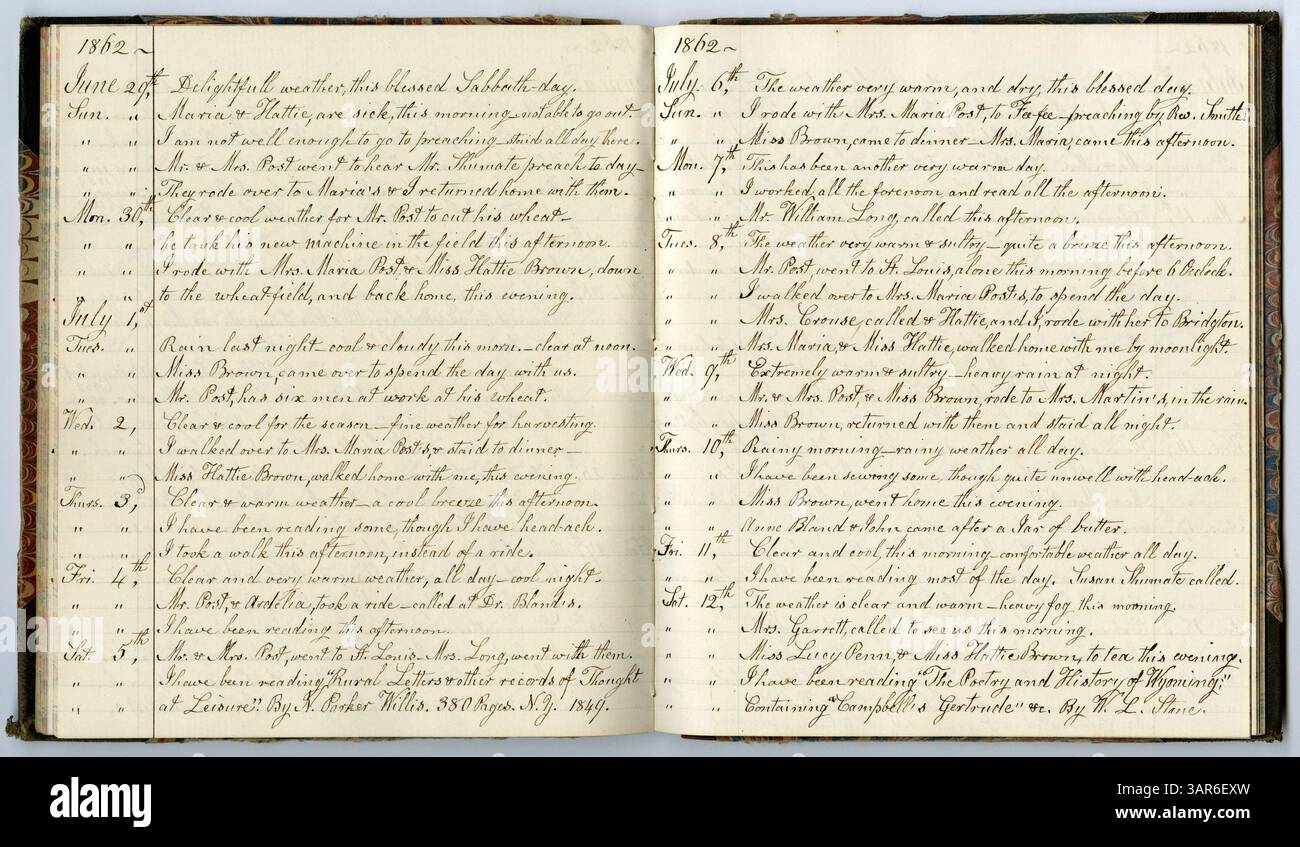 1862~
June 29,th Delightfull weather, this blessed Sabbath-day.
Sun. " Maria & Hattie, are sick, this morning - not able to go out.
" " I am not well enough to go to preaching - staid all day here.
" " Mr. & Mrs. Post went to hear Mr. Shumate preach to day -
" " They rode over to Maria's & I returned home with them.
Mon. 30,th Clear & cool weather for Mr. Post to cut his wheat -
" " he took his new machine in the field this afternoon.
" " I rode with Mrs. Maria Post, & Miss Hattie Brown, down
" " to the wheat-field, and back home, this evening.
July 1,st
Tues. " Rain last night - cool & cloudy this morn. - clear at noon.
" " Miss Brown, came over to spend the day with us.
" " Mr. Post, has six men at work at his wheat.
Wed. 2, Clear & cool for the season - fine weather for harvesting.
" " I walked over to Mrs. Maria Post's, & staid to dinner -
" " Miss Hattie Brown, walked home with me, this evening.
Thurs. 3,d Clear & warm weather - a cool breeze this afternoon.
" " I have been reading some, though I have head-ach.
" " I took a walk this afternoon, instead of a ride.
Fri. 4,th Clear and very warm weather, all day - cool night.
" " Mr. Post, & Ardelia, took a ride - called at Dr. Bland's.
" " I have been reading this afternoon.
Sat. 5,th Mr. & Mrs. Post, went to St. Louis. Mrs. Long, went with them.
" " I have been reading, "Rural Letters & other records of Thought
" " at Leisure". By N. Parker Willis. 380 Pages. N.Y. 1849.
1862~
July. 6,th The weather very warm, and dry, this blessed day.
Sun. " I rode with Mrs. Maria Post, to Fee-fee - preaching by Rev. Smith.
" " Miss Brown, came to dinner - Mrs. Maria, came this afternoon.
Mon. 7,th This has been another very warm day.
" " I worked, all the forenoon, and read all the afternoon.
" " Mr. William Long, called this afternoon.
Tues. 8,th The weather very warm & sultry - quite a breeze this afternoon.
" " Mr. Post, went to St. Louis, alone this morning before 6 Oclock.
" " I walked over to Mrs. Maria Post's, to spend the day.
" " Mrs. Crouse, called & Hattie, and I, rode with her to Bridgton.
" " Mrs. Maria, & Miss Hattie, walked home with me by moonlight.
Wed. 9,th Extremely warm & sultry - heavy rain at night.
" " Mr. & Mrs. Post, & Miss Brown, rode to Mrs. Martin's, in the rain.
" " Miss Brown, returned with them and staid all night.
Thurs. 10,th Rainy morning - rainy weather all day.
" " I have been sewing some, though quite unwell with head-ach.
" " Miss Brown, went home this evening.
" " Anne Bland & John came after a Jar of butter.
Fri. 11,th Clear and cool, this morning - comfortable weather all day.
" " I have been reading most of the day. Susan Shumate called.
Sat. 12,th The weather is clear and warm - heavy fog this morning.
" " Mrs. Garrett, called to see us this morning.
" " Miss Lucy Penn, & Miss Hattie Brown, to tea this evening.
" " I have been reading "The Poetry and History of Wyoming;"
" " Containing "Campbell's Gertrude" &c. By W. L. Stone.
alamy
Image ID: 3AR6EXW
www.alamy.com